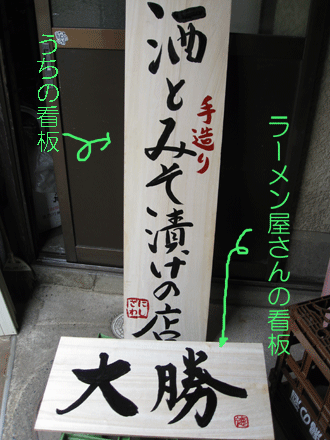 うちの看板
酒とみそ漬けの店
手造り
にしざわ
ラーメン屋さんの看板
大勝